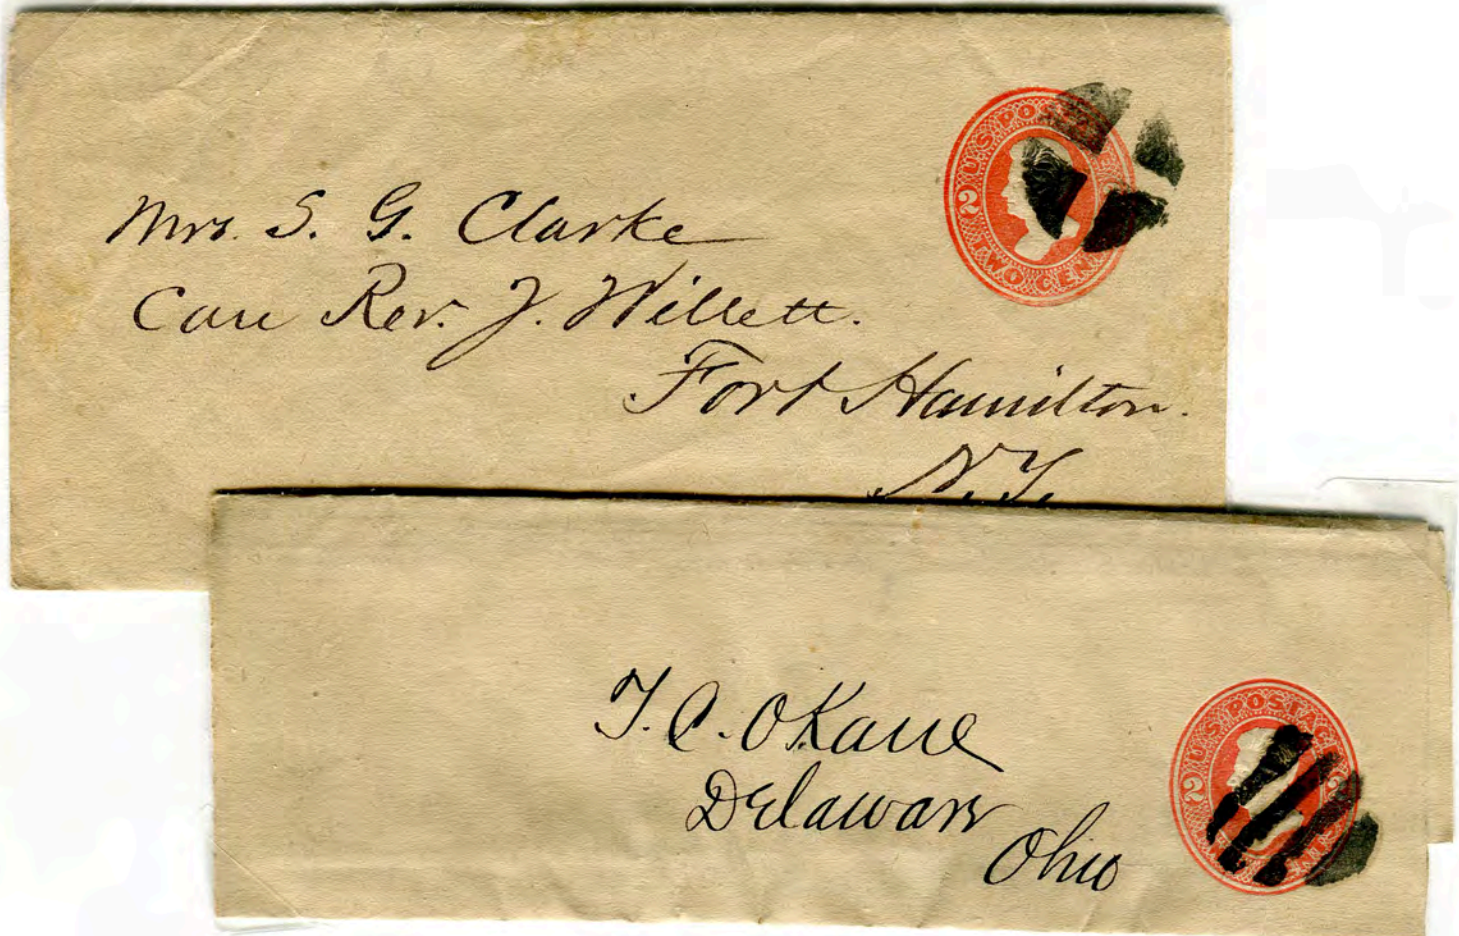 Mrs. S. G. Clarke
Care Rev. J. Willett.
Fort Hamilton.
N.Y.
U.S. POSTAGE
2
TWO CEN
T. C. OKane
Delaware
Ohio
U.S. POSTAG
2
2